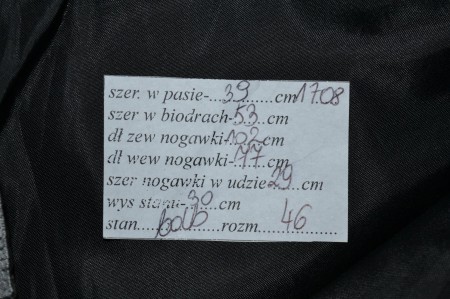 szer. w pasie-...39........cm 17.08
szer w biodrach-53......cm
dł zew nogawki-102cm
dł wew nogawki-77cm
szer nogawki w udzie 29...cm
wys stanu-30....cm
stan....................rozm...46........